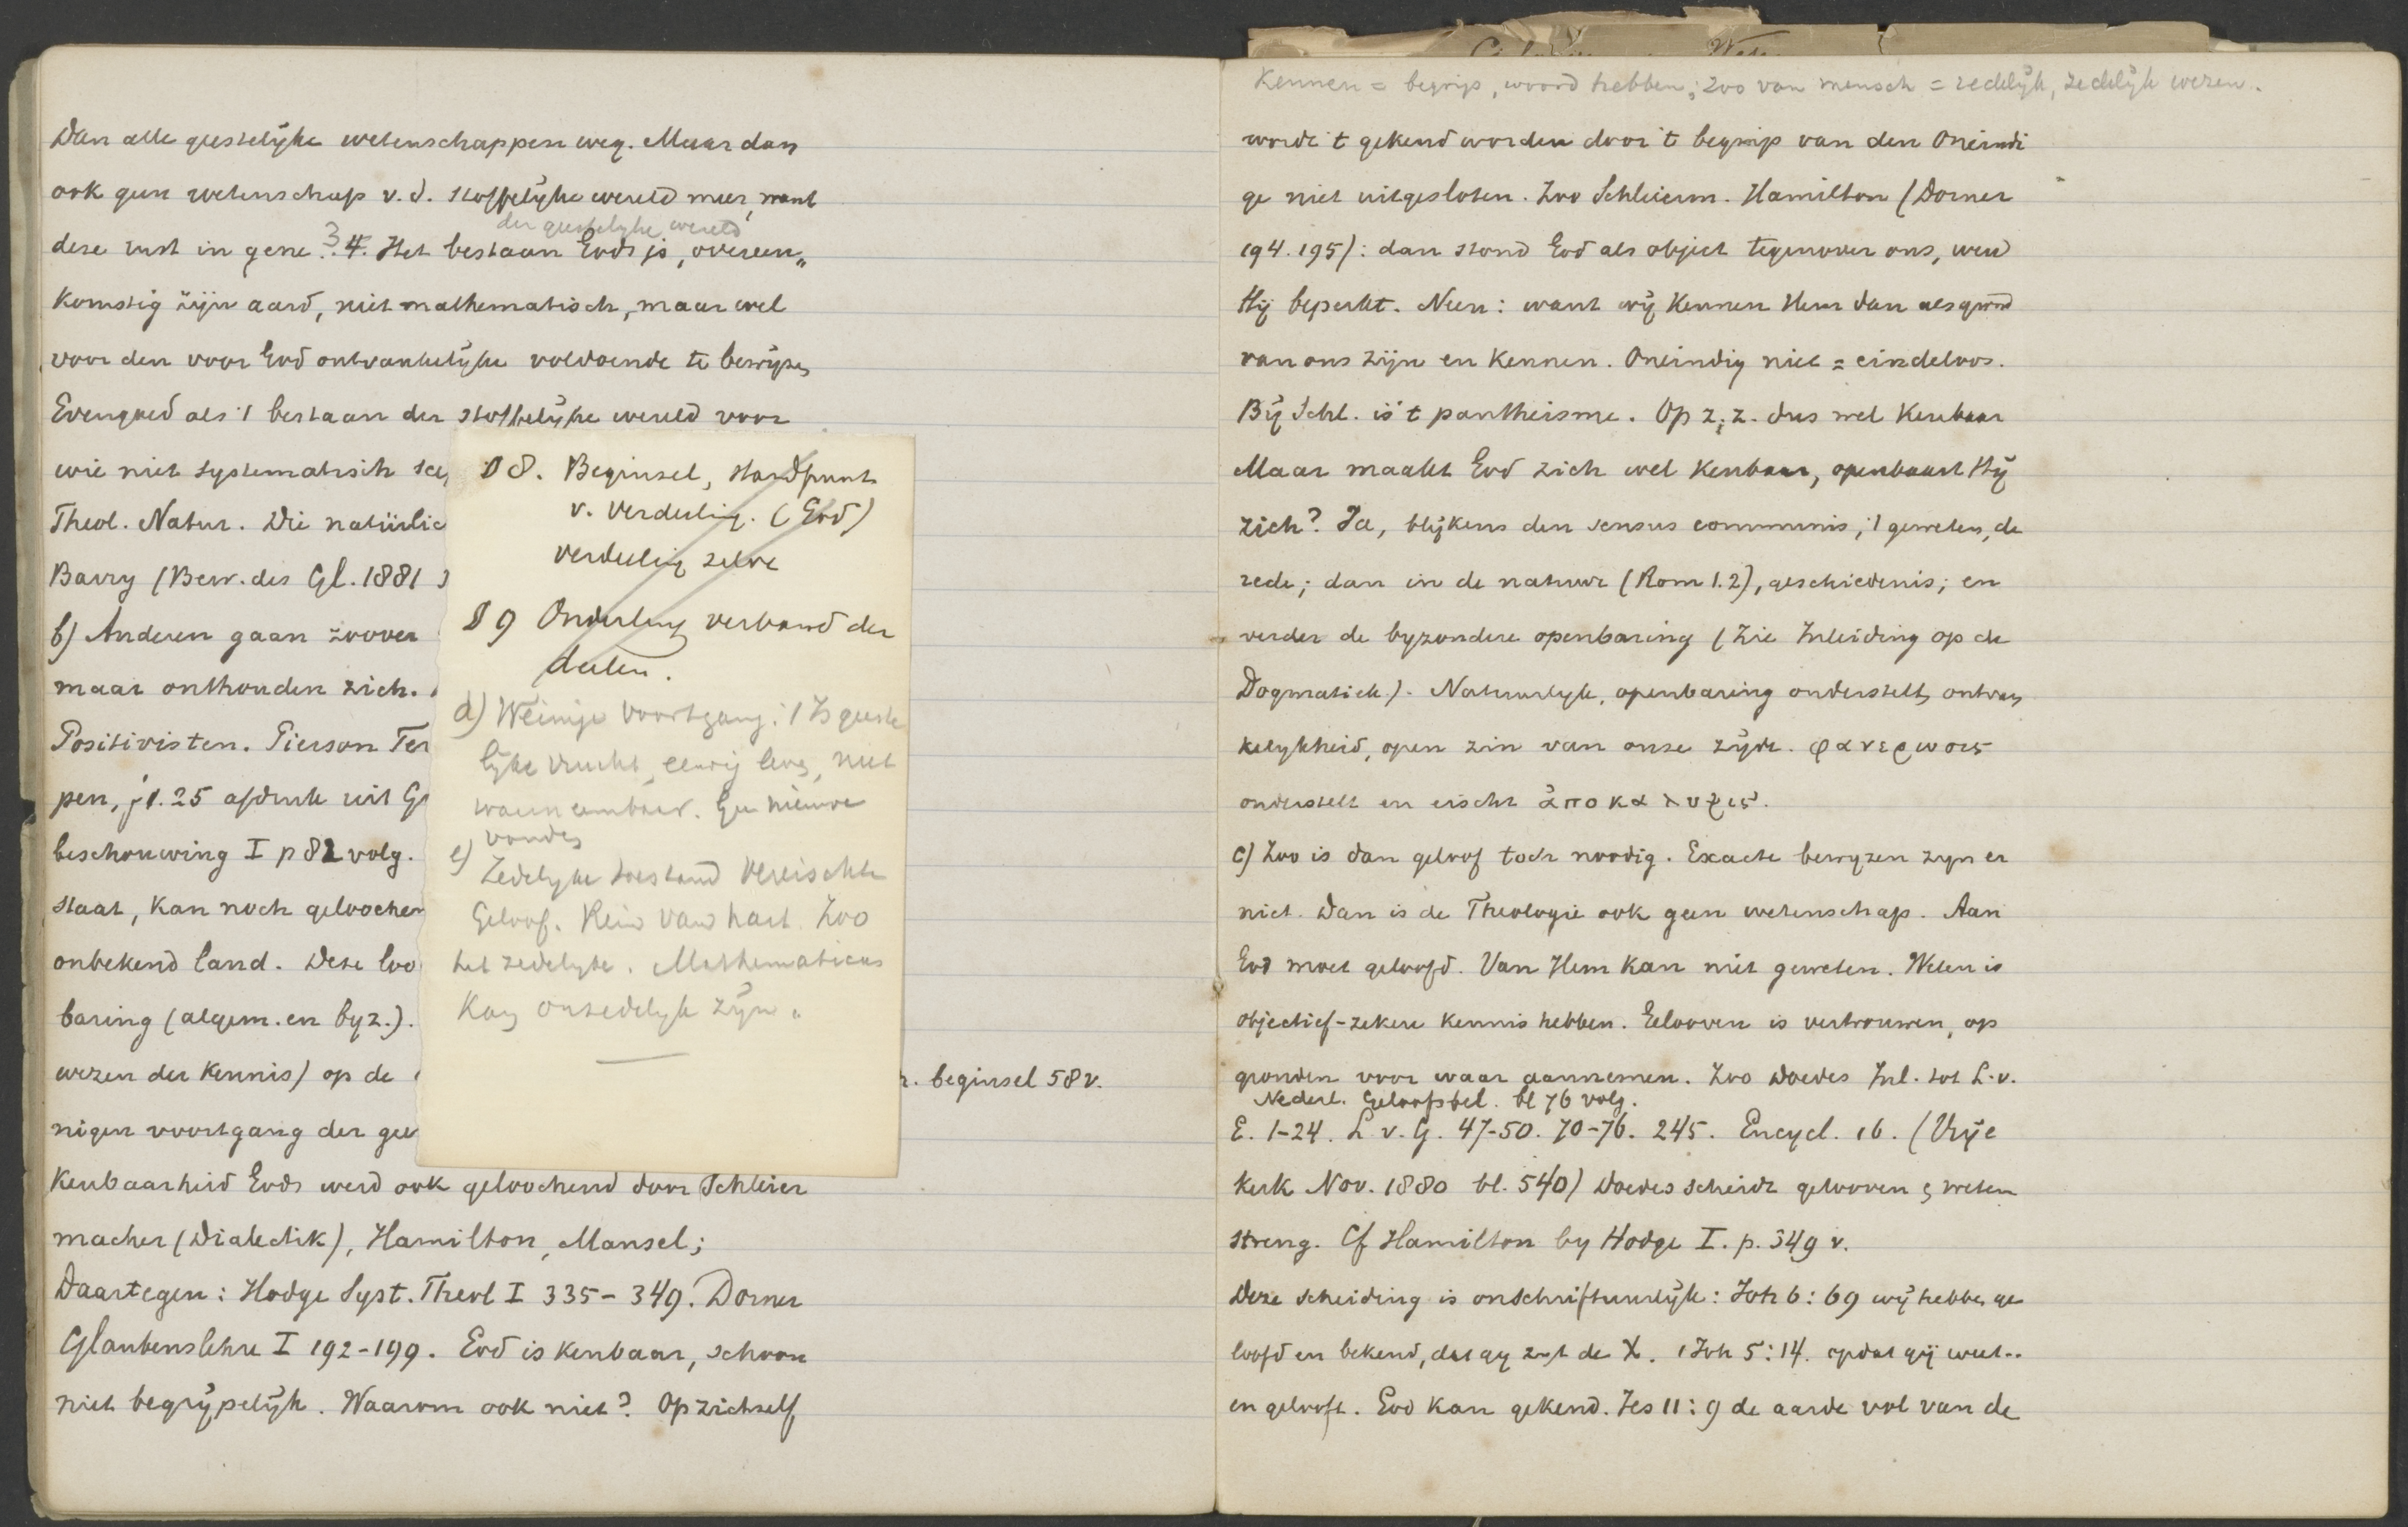 Dan alle geestelyke wetenschappen weg. Maar dan
ook geen wetenschap v.d. stoffelyke wereld meer, want
der geestelyke wereld
deze rust in gene. 3 4. Het bestaan Gods is, overeen„
komstig zijn aard, niet mathematisch, maar wel
voor den voor God ontvankelijke voldoende te bewijzen
Evengoed als 't bestaan der stoffelijke wereld voor
wie niet systematisch sce
Theol. Natur. Die natürlic
Barry (Bew. des Gl. 1881
b) Anderen gaan zoover
maar onthouden zich.
Positivisten. Pierson Ter
pen, f1.25 afdruk uit G
beschouwing I p 82 volg.
staat, kan noch geloochen
onbekend land. Deze loo
baring (algem. en byz.).
wezen der kennis) op de
. beginsel 58 v.
nigen voortgang der gee
Kenbaarheid Gods werd ook geloochend door Schleier
macher (Dialektik), Hamilton, Mansel;
Daartegen: Hodge Syst. Theol I 335-349. Dorner
Glaubenslehre I 192-199. God is kenbaar, schoon
niet begrijpelijk. Waarom ook niet? Op zichzelf
§ 8. Beginsel, standpunt
v. verdeeling. (God)
verdeeling zelve
§ 9 Onderling verband der
deelen.
d) Weinige voortgang: 't Is geeste
lijke vrucht, eeuwig leven, niet
waarneembaar. Gee nieuwe
vonden
e) Zedelyke toestand vereischte
Geloof. Rein van hart. Zoo
het zedelyke. Mathematicus
kan onzedelyk zijn.
Kennen = begrip, woord hebben; zoo van mensch = redelijk, zedelijk wezen.
wordt 't gekend worden door 't begrip van den Oneindi
ge niet uitgesloten. Zoo Schleierm. Hamilton (Dorner
194. 195): dan stond God als object tegenover ons, werd
Hij beperkt. Neen: want wij kennen Hem dan als grond
van ons zijn en kennen. Oneindig niet = eindeloos.
Bij Schl. is 't pantheisme. Op z.z. dus wel kenbaar
Maar maakt God zich wel kenbaar, openbaart Hij
zich? Ja, blijkens den sensus communis, 't geweten, de
rede; dan in de natuur (Rom 1.2), geschiedenis; en
verder de byzondere openbaring (Zie Inleiding op de
Dogmatiek). Natuurlyk, openbaring onderstelt, ontvan
kelykheid, open zin van onze zijde. φανερωσις
onderstelt en eischt ἀποκαλυψις.
c) Zoo is dan geloof toch noodig. Exacte bewyzen zyn er
niet. Dan is de Theologie ook geen wetenschap. Aan
God moet geloofd. Van Hem kan niet geweten. Weten is
objectief-zekere kennis hebben. Gelooven is vertrouwen, op
gronden voor waar aannemen. Zoo Doedes Inl. tot L.v.
Nederl. Geloofsbel. bl 76 volg.
E. 1-24. L.v.G. 47-50. 70-76. 245. Encycl. 16. (Vrije
Kerk Nov. 1880 bl. 540) Doedes scheidt gelooven & weten
streng. Cf Hamilton by Hodge I. p. 349 v.
Deze scheiding is onschriftuurlijk: Joh 6:69 wij hebben ge
loofd en bekend, dat gy zyt de X. 1 Joh 5:14. opdat gij weet..
en gelooft. God kan gekend. Jes 11:9 de aarde vol van de